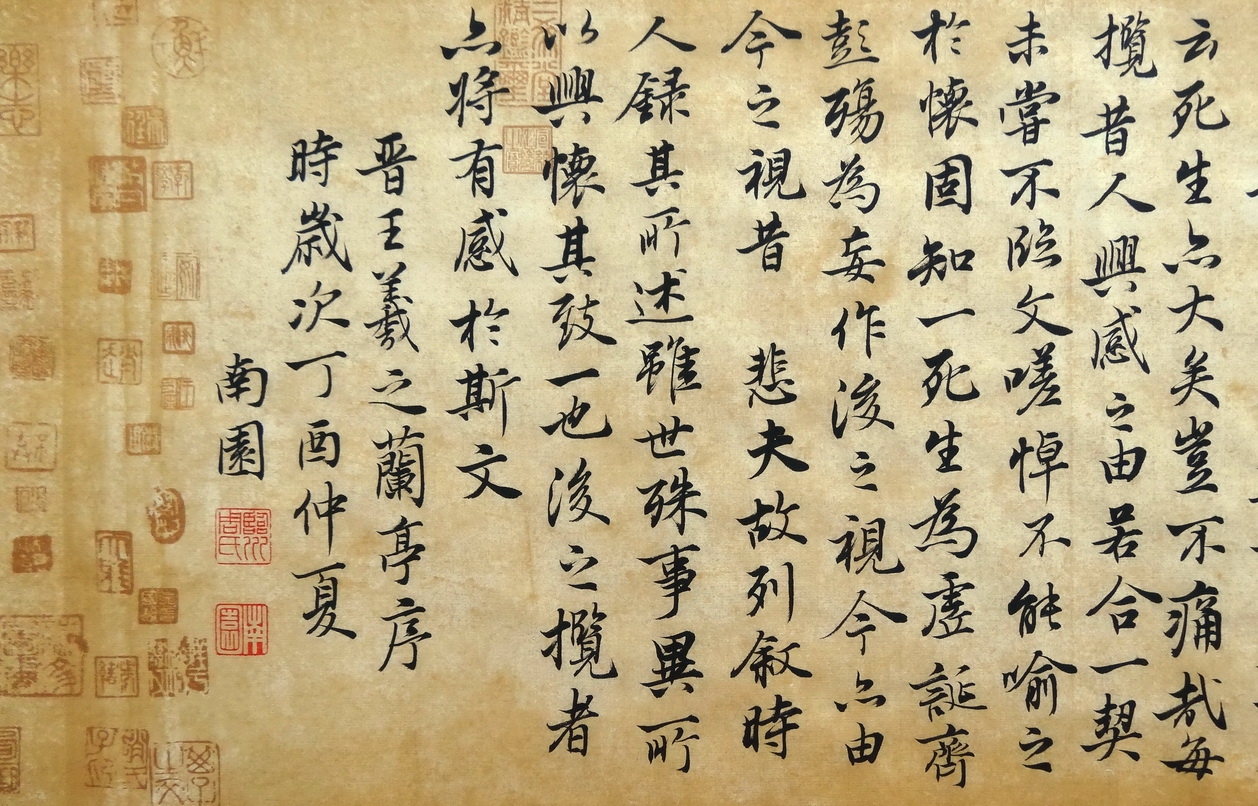 云死生亦大矣豈不痛哉每
攬昔人興感之由若合一契
未嘗不臨文嗟悼不能喻之
於懷固知一死生為虛誕齊
彭殤為妄作後之視今亦由
今之視昔 悲夫故列敘時
人録其所述雖世殊事異所
以興懷其致一也後之攬者
亦將有感於斯文
晋王羲之蘭亭序
時歲次丁酉仲夏
南園